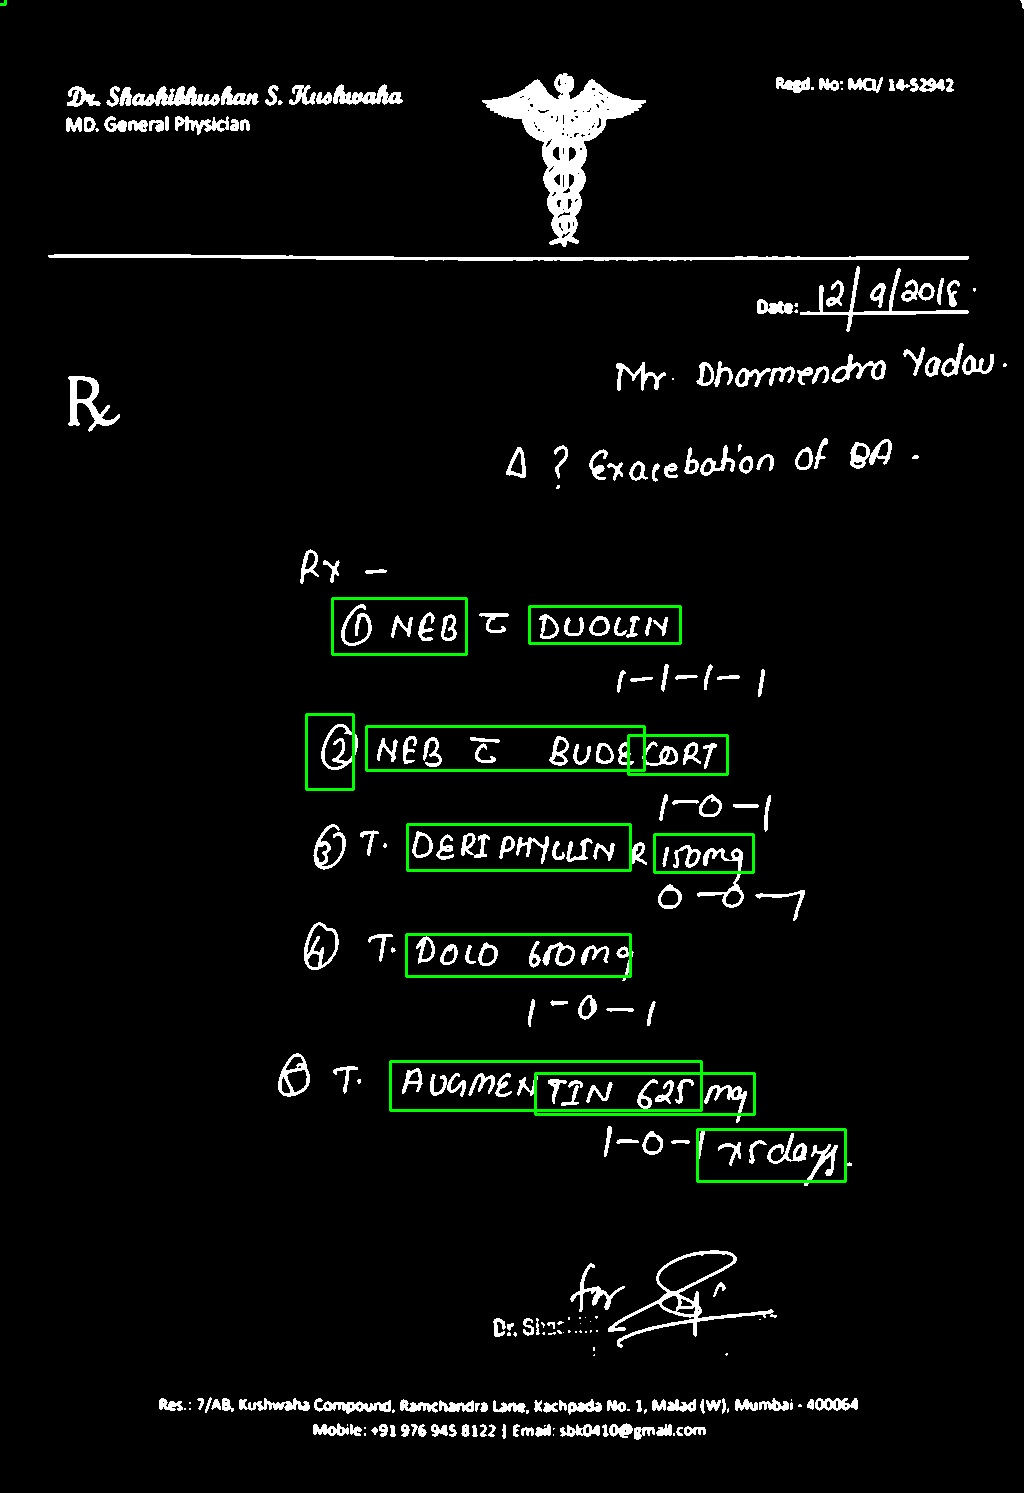 Dr. Shashibhushan S. Kushwaha
MD. General Physician
Regd. No: MCI/ 14-52942
Date: 12/9/2018.
Mr. Dharmendra Yadav.
Rx
Δ ? Exacebation of BA.
Rx -
① NEB c̅ DUOLIN
1-1-1-1
② NEB c̅ BUDECORT
1-0-1
③ T. DERIPHYLLIN R 150mg
0-0-1
④ T. DOLO 650mg
1-0-1
⑤ T. AUGMENTIN 625 mg
1-0-1 x5days.
for
Dr.
Res.: 7/AB, Kushwaha Compound, Ramchandra Lane, Kachpada No. 1, Malad (W), Mumbai - 400064
Mobile: +91 976 945 8122 | Email: sbk0410@gmail.com